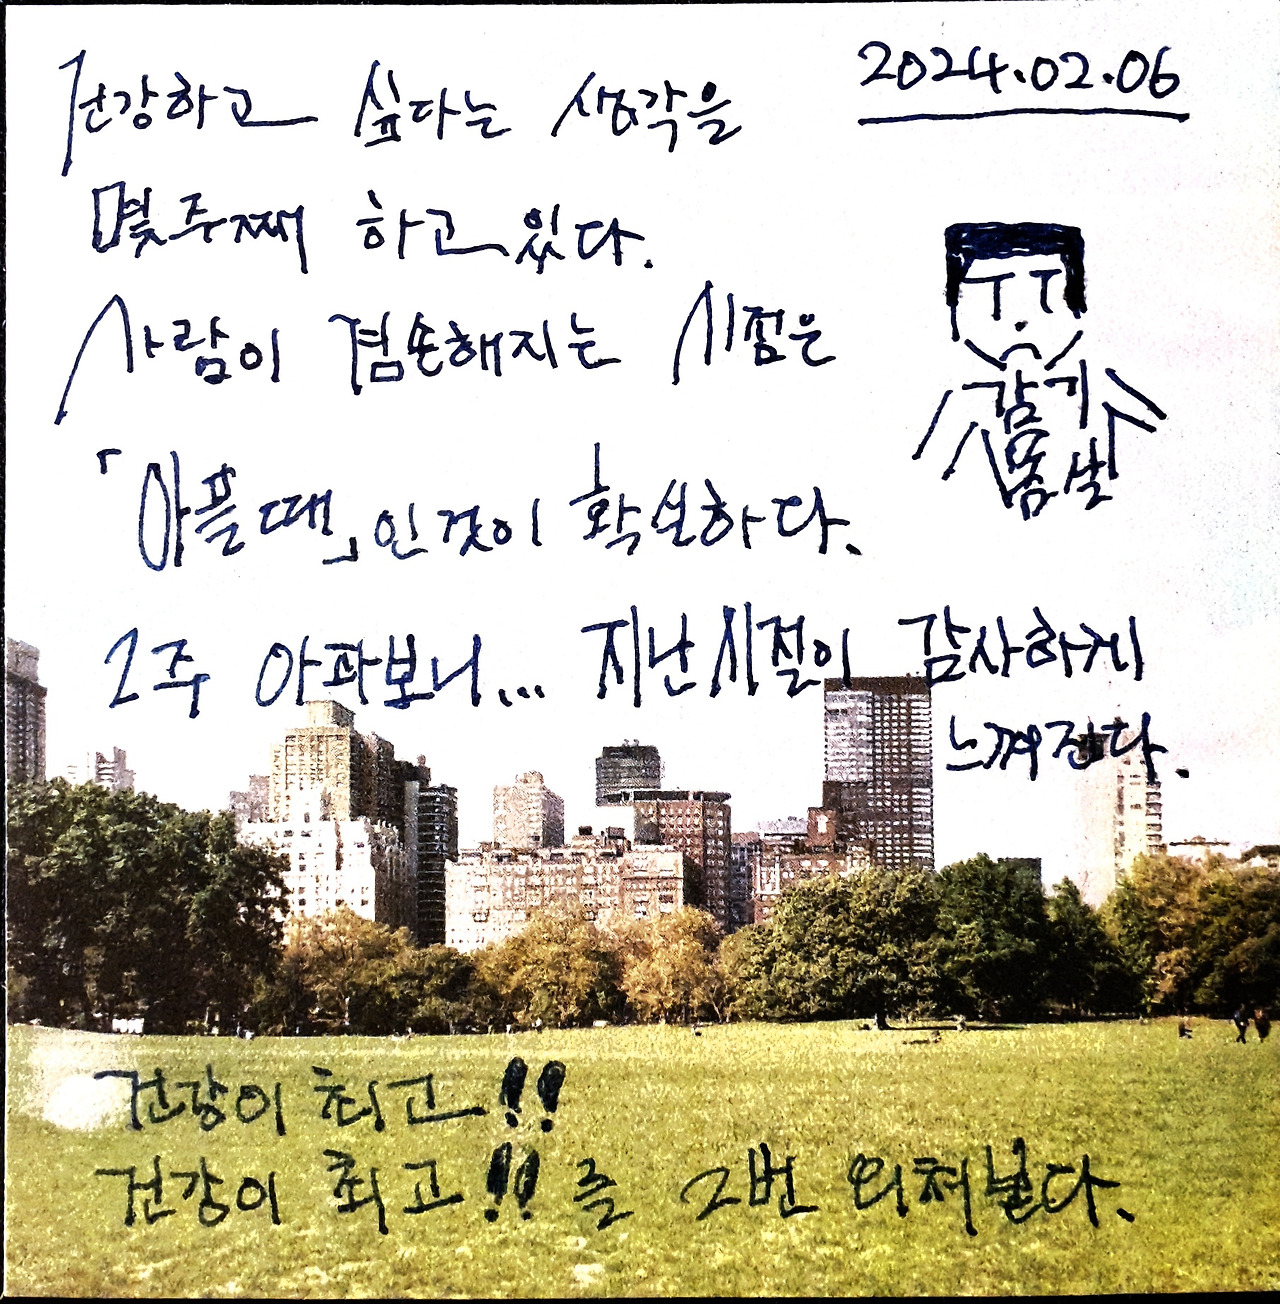 2024.02.06
건강하고 싶다는 생각을
몇주째 하고 있다.
사람이 겸손해지는 시점은
「아플때」인것이 확실하다.
2주 아파보니... 지난시절이 감사하게
느껴진다.
ㅜㅜ
감기
몸살
건강이 최고!!
건강이 최고!! 를 2번 외쳐본다.